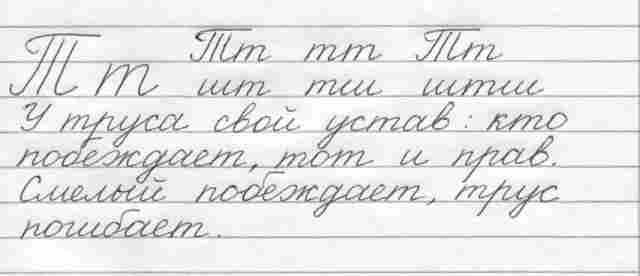 Тт тт Тт
Т т шт тш штш
У труса свой устав: кто
побеждает, тот и прав.
Смелый побеждает, трус
погибает.